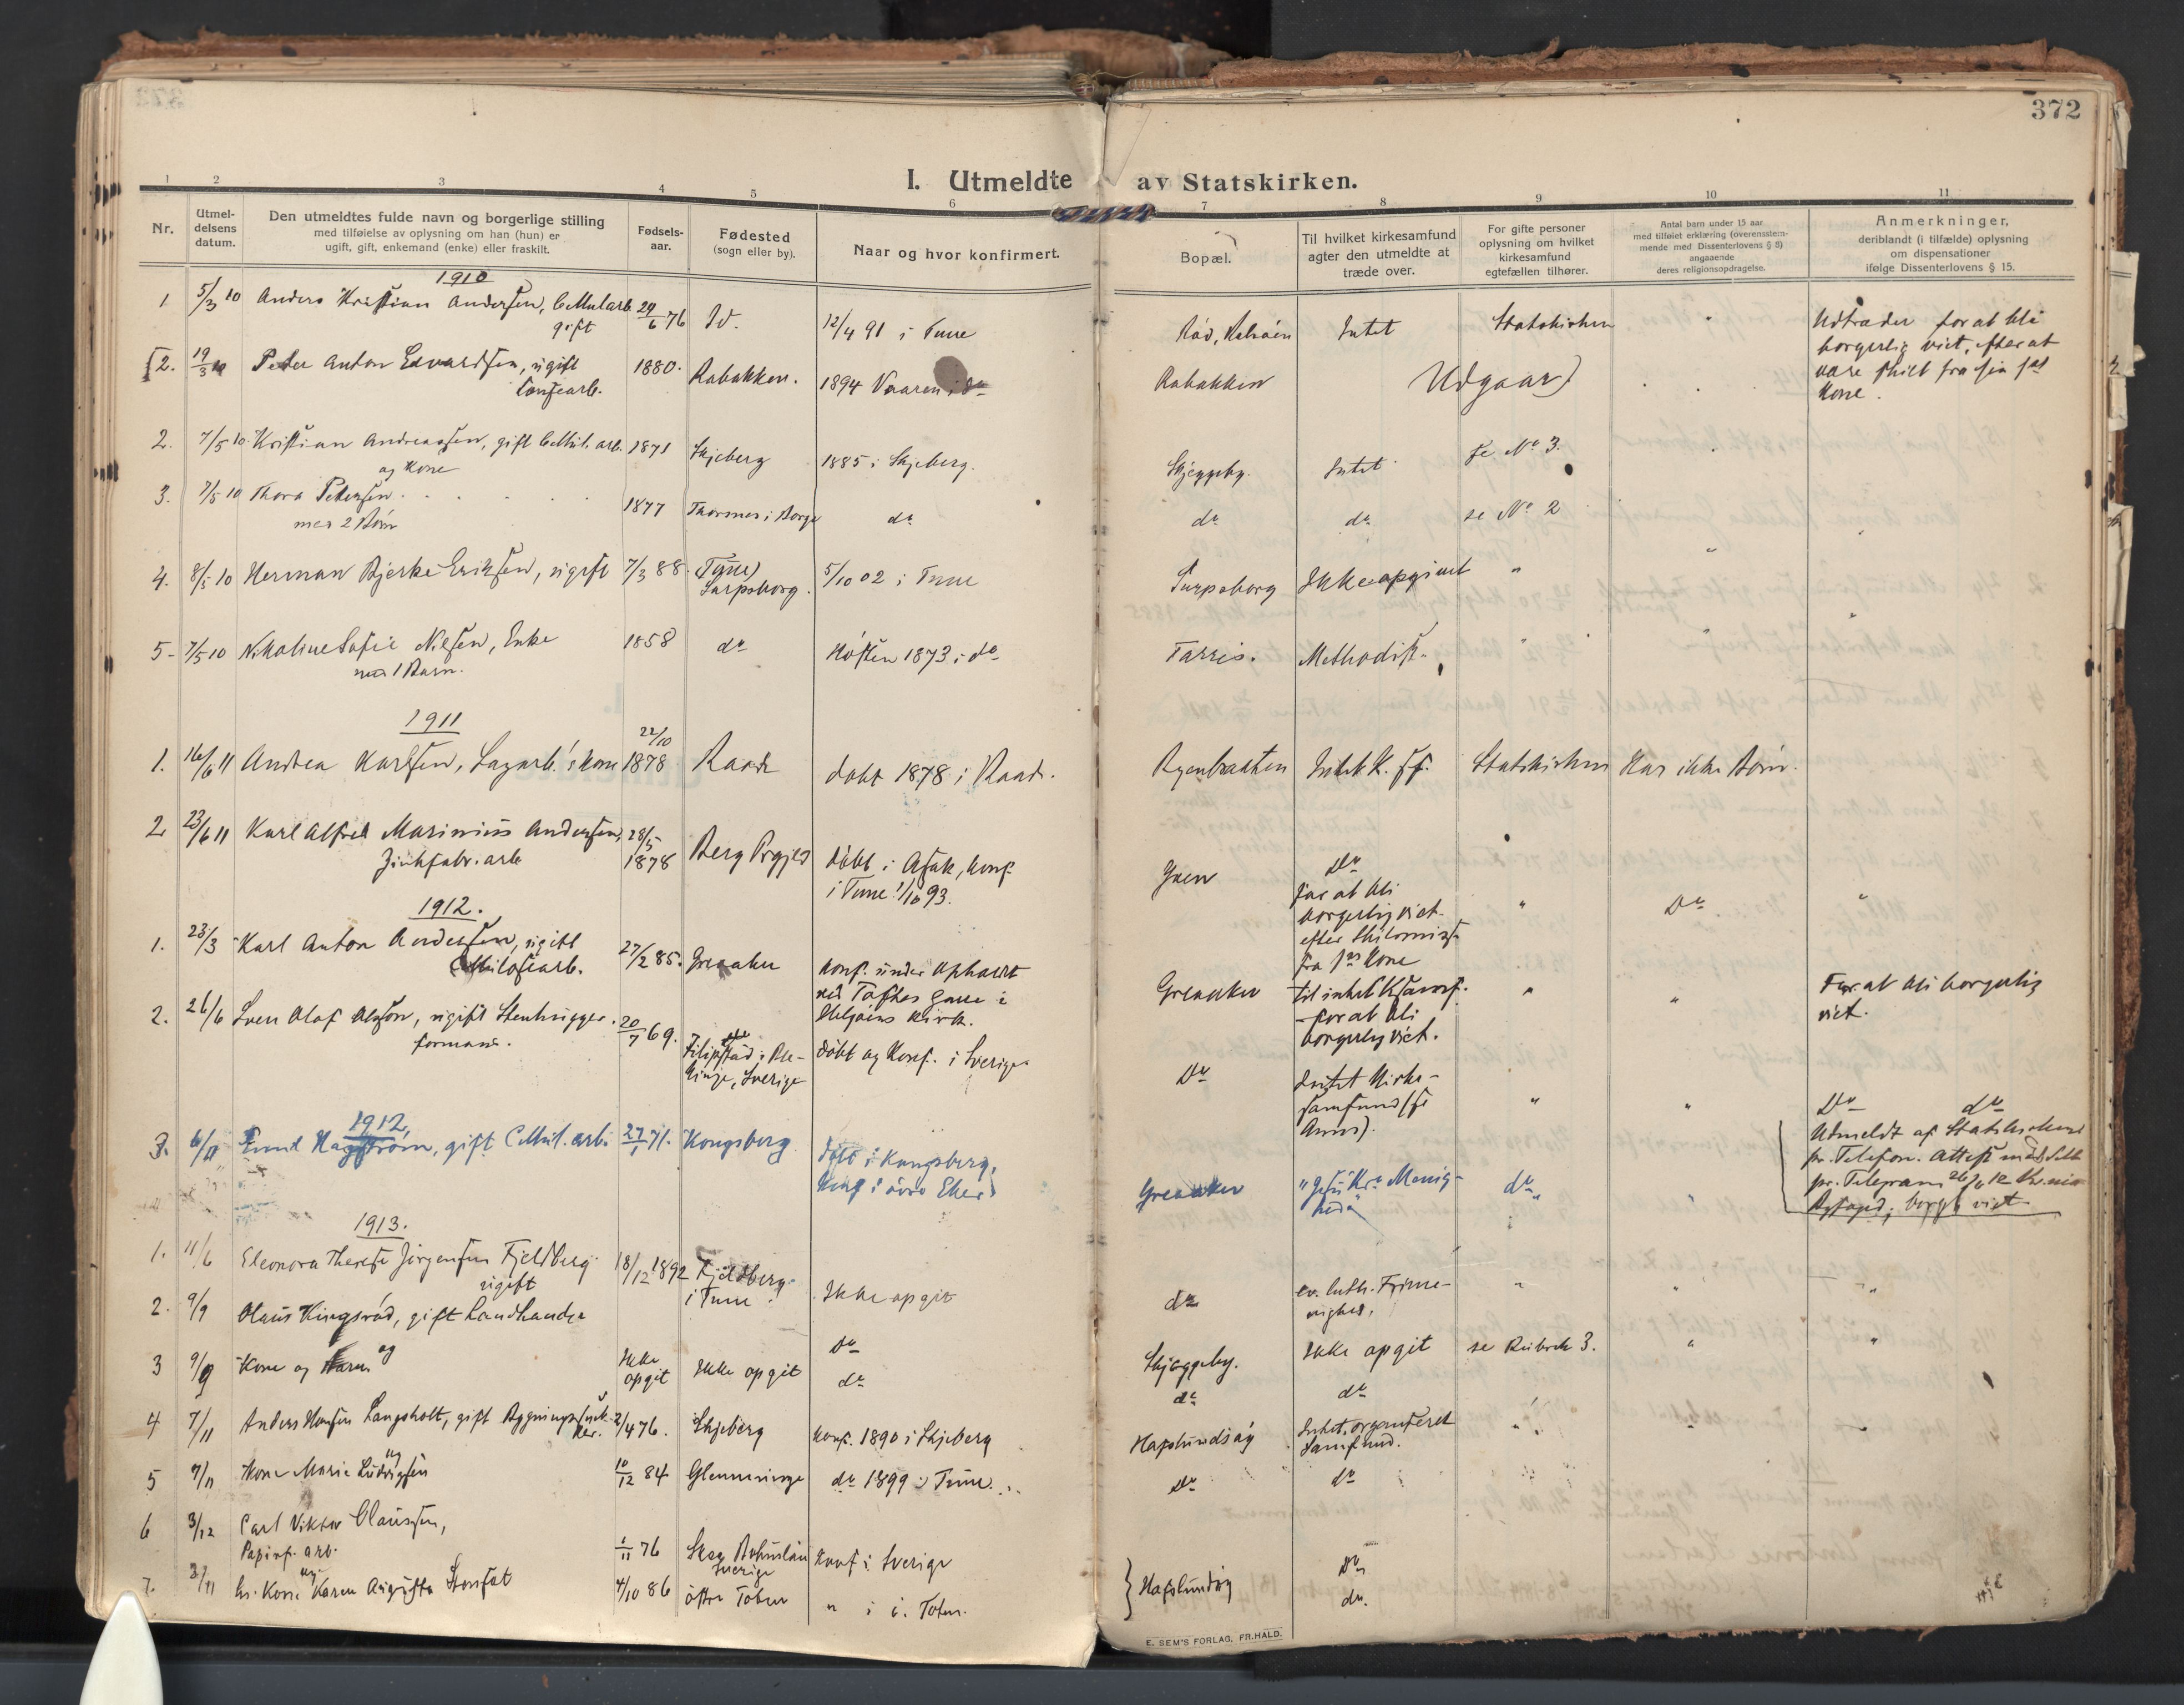 372
I. Utmeldte av Statskirken.
1 2 3 4 5 6 7 8 9 10 11
Nr.
Utmel-
delsens
datum.
Den utmeldtes fulde navn og borgerlige stilling
med tilføielse av oplysning om han (hun) er
ugift, gift, enkemand (enke) eller fraskilt.
Fødsels-
aar.
Fødested
(sogn eller by).
Naar og hvor konfirmert.
Bopæl.
Til hvilket kirkesamfund
agter den utmeldte at
træde over.
For gifte personer
oplysning om hvilket
kirkesamfund
egtefællen tilhører.
Antal barn under 15 aar
med tilføiet erklæring (overensstem-
mende med Dissenterlovens § 8)
angaaende
deres religionsopdragelse.
Anmerkninger,
deriblandt (i tilfælde) oplysning
om dispensationer
ifølge Dissenterlovens § 15.
1910
1. 5/3 10 Anders Kristian Andersen, Cellularb. 29/6 76 Id. 12/4 91 i Tune
gift
Intet Statskirken
Udtræder for at bli
borgerlig viet, efter at
være skilt fra sin 1ste
Kone.
2. 19/3 10 Peder Anton Edvardsen, ugift 1880. Rabakken. 1894 Vaaren i do
Rabakken Udgaar)
2. 7/5 10 Kristian Andreassen, gift Cellul. arb. 1871 Skjeberg 1885 i Skjeberg.
og Kone
Skjeggeby. Intet se No 3.
3. 7/5 10 Thora Petersen 1877 i Borge do
med 2 Børn
do do se No 2
4. 8/5 10 Herman Bjerke Eriksen, ugift 7/3 88 (Tune) 5/10 02 i Tune
Sarpsborg.
Sarpsborg Ikke opgivet "
5 7/5 10 Nikoline Sofie Nilsen, Enke 1858 do Høsten 1873 i do
med 1 Barn.
Tarris. Methodist.
1911
1. 16/6 11 Andrea Karlsen, Kone 22/10 1878 Raade døbt 1878 i Raade.
Intet K. sf. Statskirken Har ikke Børn.
2 23/6 11 Karl Alfred Marinius Andersen, 28/5 1878 Berg Prgjeld døbt i Asak, konf.
Zinkfabr. arb i Tune 1/10 93.
Do
for at bli
borgerlig viet
efter Skilsmisse
fra 1ste Kone
" Do "
1912.
1. 23/3 Karl Anton Andersen, ugift 27/2 85. Greaaker konf. under Ophold
ved Toftes Gave i
Helgøens Kirk.
Greaaker til intet Ksamf.
- for at bli
borgerlig viet.
For at bli borgerlig
viet.
2. 26/6 Sven Olof Olsson, ugift Stenhugger- 20/7 69. Filipstad i Ble- Døbt og Konf. i Sverige
formand. kinge, Sverige
Do Intet Kirke-
samfund (se
Anm).
Do do
1912,
3. 6/11 Hagstrøm, gift Cellul. arb. 27/1 71. Kongsberg døbt i Kongsberg,
konf i øvre Eker
Greaaker Menig-
hed" do
Utmeldt af Statskirken
pr. Telefon. Attest
pr. Telegram
borgl. viet
1913.
1. 11/6 Eleonora Therese Jørgensen Fjeldberg 18/12 1892 Fjeldberg Ikke opgit
ugift i Tune
do ev. luth. Frime-
nighed.
2. 9/9 Olaus Kingsrød, gift Landhandler Do
Skjeggeby. Ikke opgit se Rubrik 3.
3 9/9 Kone og Barn Ikke opgit Ikke opgit do
do do
4 7/11 Anders Hansen Langsholt, gift Bygningssnek- 2/4 76. Skjeberg Konf. 1890 i Skjeberg
ker.
Hafslundsøy Intet organiseret
Samfund.
5 7/11 og Kone Marie Ludvigsen 10/12 84 Glemminge do 1899 i Tune
Do do
6 3/12 Carl Viktor Claussen, 1/11 76 Bohuslän Konf i Sverige
Papirf. arb. Sverige
Hafslundsøy Do
7. 3/11 og hs. Kone Karen Augusta 4/10 86 østre Toten " i ø. Toten.
do.
E. SEM'S FORLAG, FR.HALD.